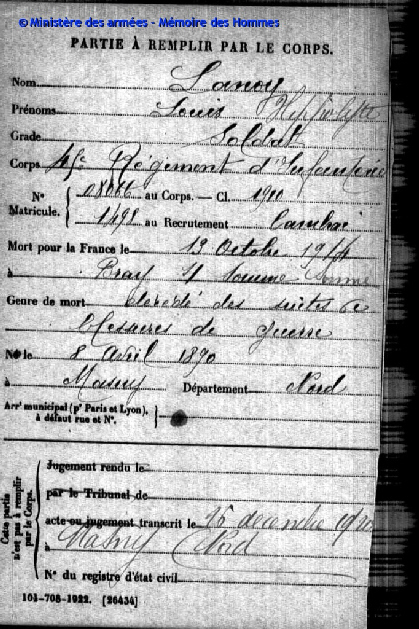 © Ministère des armées - Mémoire des Hommes
PARTIE À REMPLIR PAR LE CORPS.
Nom Lanoy
Prénoms Louis
Grade Soldat
Corps Régiment d'Infanterie
N° Matricule. au Corps. — Cl. 1910
1498 au Recrutement Cambrai
Mort pour la France le 13 Octobre 1914
à Bray s/ Somme Somme
Genre de mort décédé des suites de
blessures de guerre
Né le 8 Avril 1890
à Masny Département Nord
Arr<sup>t</sup> municipal (p<sup>r</sup> Paris et Lyon),
à défaut rue et N°.
Cette partie
n'est pas à remplir
par le Corps.
Jugement rendu le
par le Tribunal de
acte ou jugement transcrit le 16 décembre 1920
à Masny Nord
N° du registre d'état civil
101-708-1922. [26434]